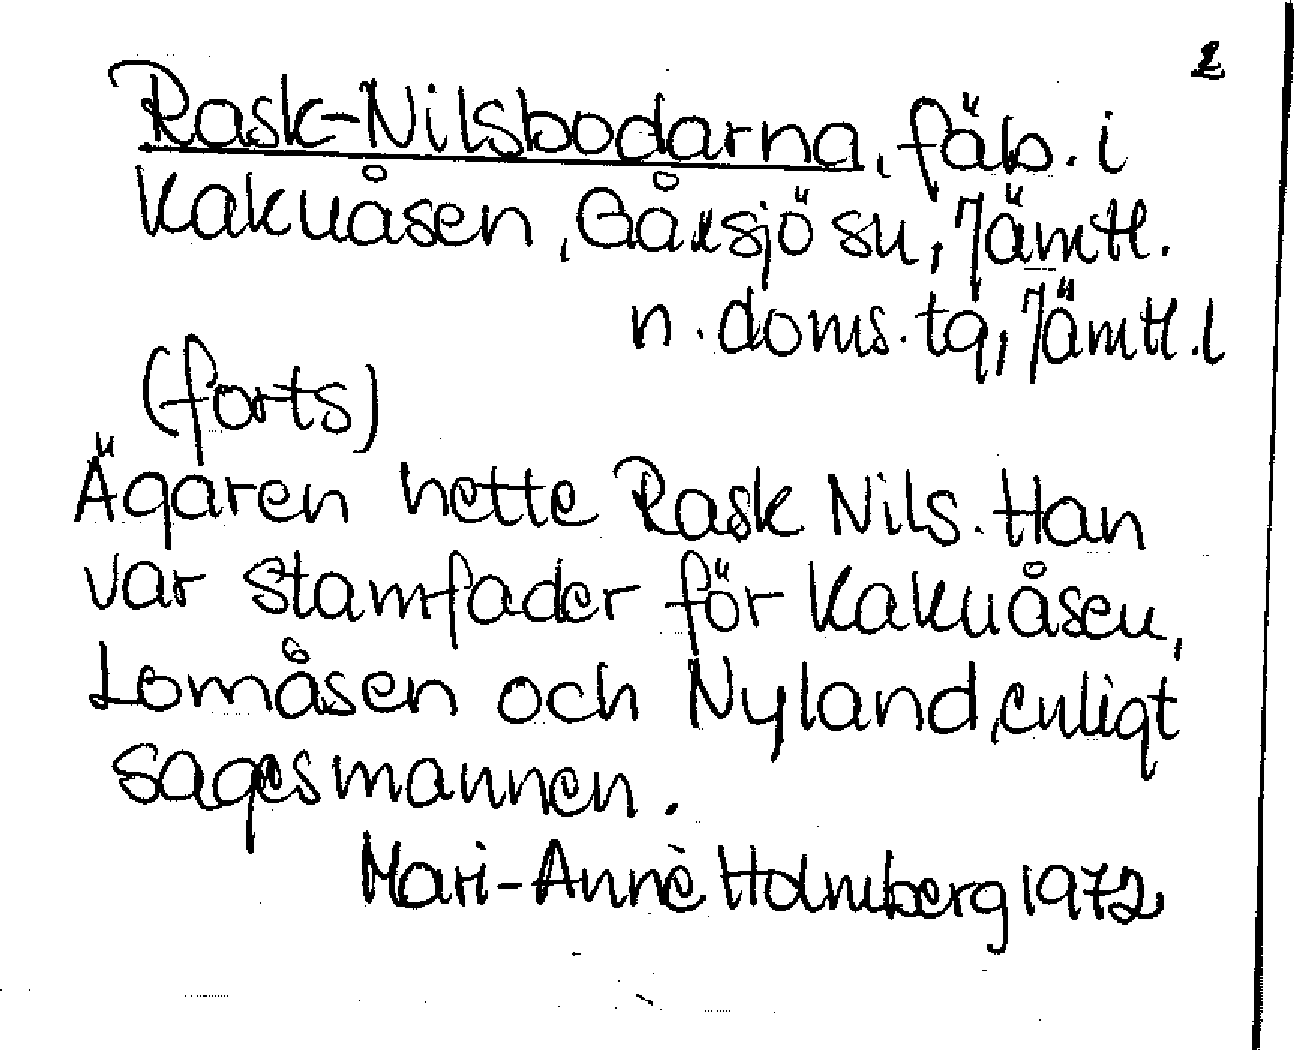 2
Rask-Nilsbodarna, fäb. i
Kakuåsen, Gåxsjö sn, Jämtl.
n. doms. tg, Jämtl. l
(forts)
Ägaren hette Rask Nils. Han
var stamfader för Kakuåsen,
Lomåsen och Nyland, enligt
sagesmannen.
Mari-Annè Holmberg 1972